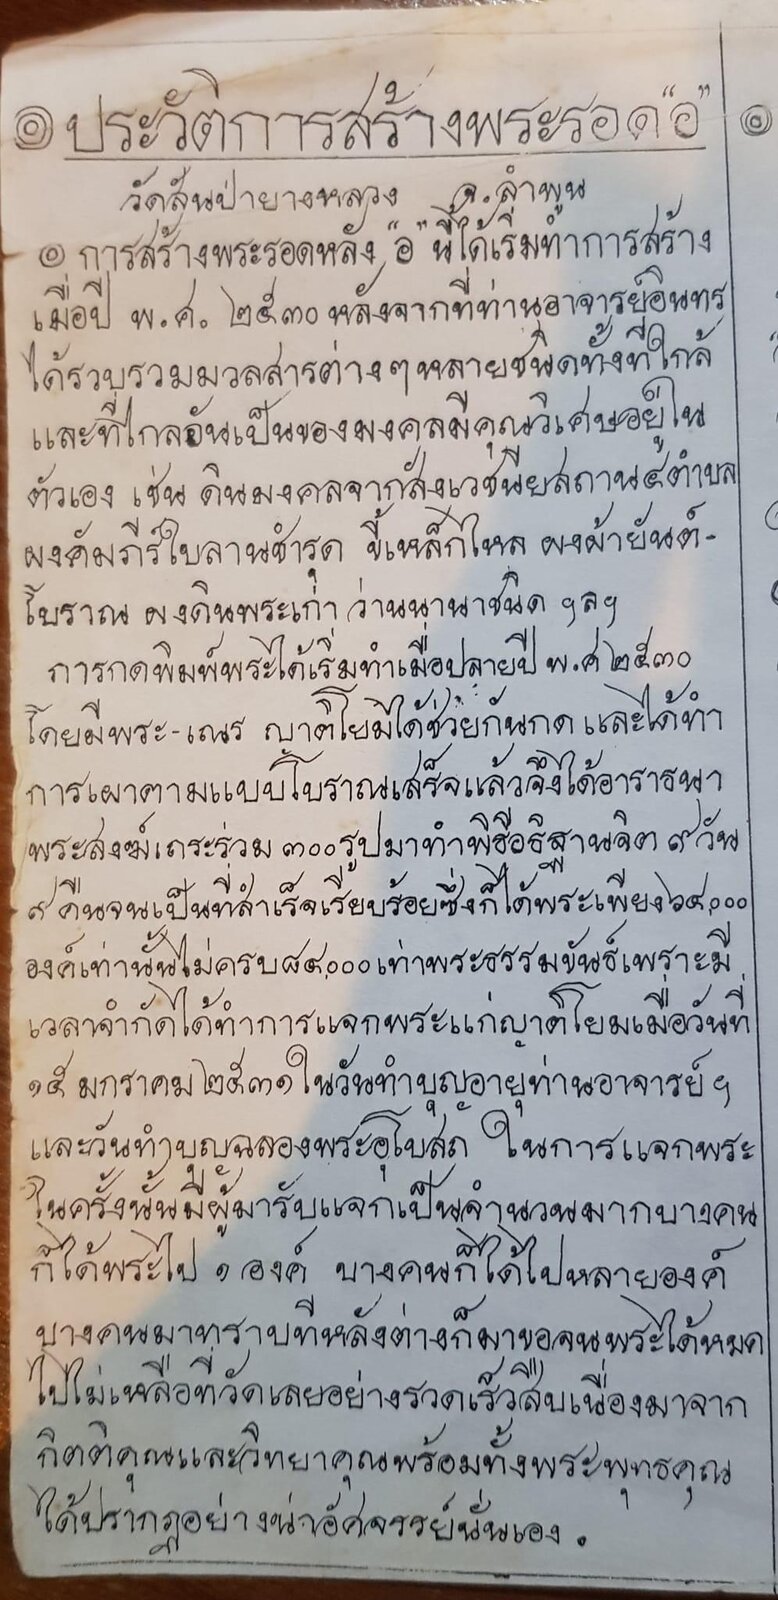 ๏ ประวัติการสร้างพระรอด"อ" ๏
วัดสันป่ายางหลวง จ.ลำพูน
๏ การสร้างพระรอดหลัง "อ" นี้ได้เริ่มทำการสร้าง
เมื่อปี พ.ศ. ๒๕๓๐ หลังจากที่ท่านอาจารย์อินทร
ได้รวบรวมมวลสารต่างๆหลายชนิดทั้งที่ใกล้
และที่ไกลอันเป็นของมงคลมีคุณวิเศษอยู่ใน
ตัวเอง เช่น ดินมงคลจากสังเวชนียสถาน๕ตำบล
ผงคัมภีร์ใบลานชำรุด ขี้เหล็กไหล ผงผ้ายันต์-
โบราณ ผงดินพระเก่า ว่านนานาชนิด ฯลฯ
การกดพิมพ์พระได้เริ่มทำเมื่อปลายปี พ.ศ ๒๕๓๐
โดยมีพระ-เณร ญาติโยมได้ช่วยกันกด และได้ทำ
การเผาตามแบบโบราณเสร็จแล้วจึงได้อาราธนา
พระสงฆ์เถระร่วม ๓๐๐ รูปมาทำพิธีอธิฐานจิต ๙ วัน
๙ คืนจนเป็นที่สำเร็จเรียบร้อยซึ่งก็ได้พระเพียง๖๔,๐๐๐
องค์เท่านั้นไม่ครบ๘๔,๐๐๐เท่าพระธรรมขันธ์เพราะมี
เวลาจำกัดได้ทำการแจกพระแก่ญาติโยมเมื่อวันที่
๑๕ มกราคม ๒๕๓๑ ในวันทำบุญอายุท่านอาจารย์ ฯ
และวันทำบุญฉลองพระอุโบสถ ในการแจกพระ
ในครั้งนั้นมีผู้มารับแจกเป็นจำนวนมากบางคน
ก็ได้พระไป ๑ องค์ บางคนก็ได้ไปหลายองค์
บางคนมาทราบทีหลังต่างก็มาขอจนพระได้หมด
ไปไม่เหลือที่วัดเลยอย่างรวดเร็วสืบเนื่องมาจาก
กิตติคุณและวิทยาคุณพร้อมทั้งพระพุทธคุณ
ได้ปรากฏอย่างน่าอัศจรรย์นั่นเอง.